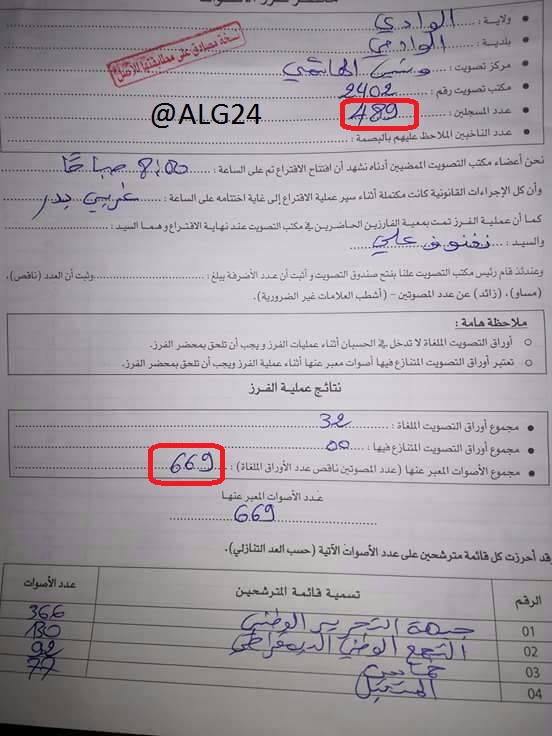 محضر فرز الأصوات
ولاية : الوادي
بلدية : الوادي
نسخة مصادق على مطابقتها للأصل
مركز تصويت : الهاشمي
مكتب تصويت رقم : 2402
@ALG24
عدد المسجلين : 489
عدد الناخبين الملاحظ عليهم بالبصمة :
نحن أعضاء مكتب التصويت الممضيين أدناه نشهد أن افتتاح الاقتراع تم على الساعة : 8:00 صباحا
وأن كل الإجراءات القانونية كانت مكتملة أثناء سير عملية الاقتراع إلى غاية اختتامه على الساعة : غريبي بدر
كما أن عملية الفرز تمت بمعية الفارزين الحاضرين في مكتب التصويت عند نهاية الاقتراع وهما السيد :
والسيد : علي
وعندئذ قام رئيس مكتب التصويت علنا بفتح صندوق التصويت و أثبت أن عدد الأظرفة يبلغ : وثبت أن العدد (ناقص)،
(مساو)، (زائد) عن عدد المصوتين - (أشطب العلامات غير الضرورية).
ملاحظة هامة :
أوراق التصويت الملغاة لا تدخل في الحسبان أثناء عمليات الفرز و يجب أن تلحق بمحضر الفرز.
تعتبر أوراق التصويت المتنازع فيها أصوات معبر عنها أثناء عملية الفرز ويجب أن تلحق بمحضر الفرز.
نتائج عملية الفرز
مجموع أوراق التصويت الملغاة : 32
مجموع أوراق التصويت المتنازع فيها : 00
مجموع الأصوات المعبر عنها (عدد المصوتين ناقص عدد الأوراق الملغاة) : 669
عدد الأصوات المعبر عنها
669
وقد أحرزت كل قائمة مترشحين على عدد الأصوات الآتية (حسب العد التنازلي).
الرقم تسمية قائمة المترشحين عدد الأصوات
01 جبهة التحرير الوطني 366
02 التجمع الوطني الديمقراطي 130
03 حماس 92
04 المستقبل 77